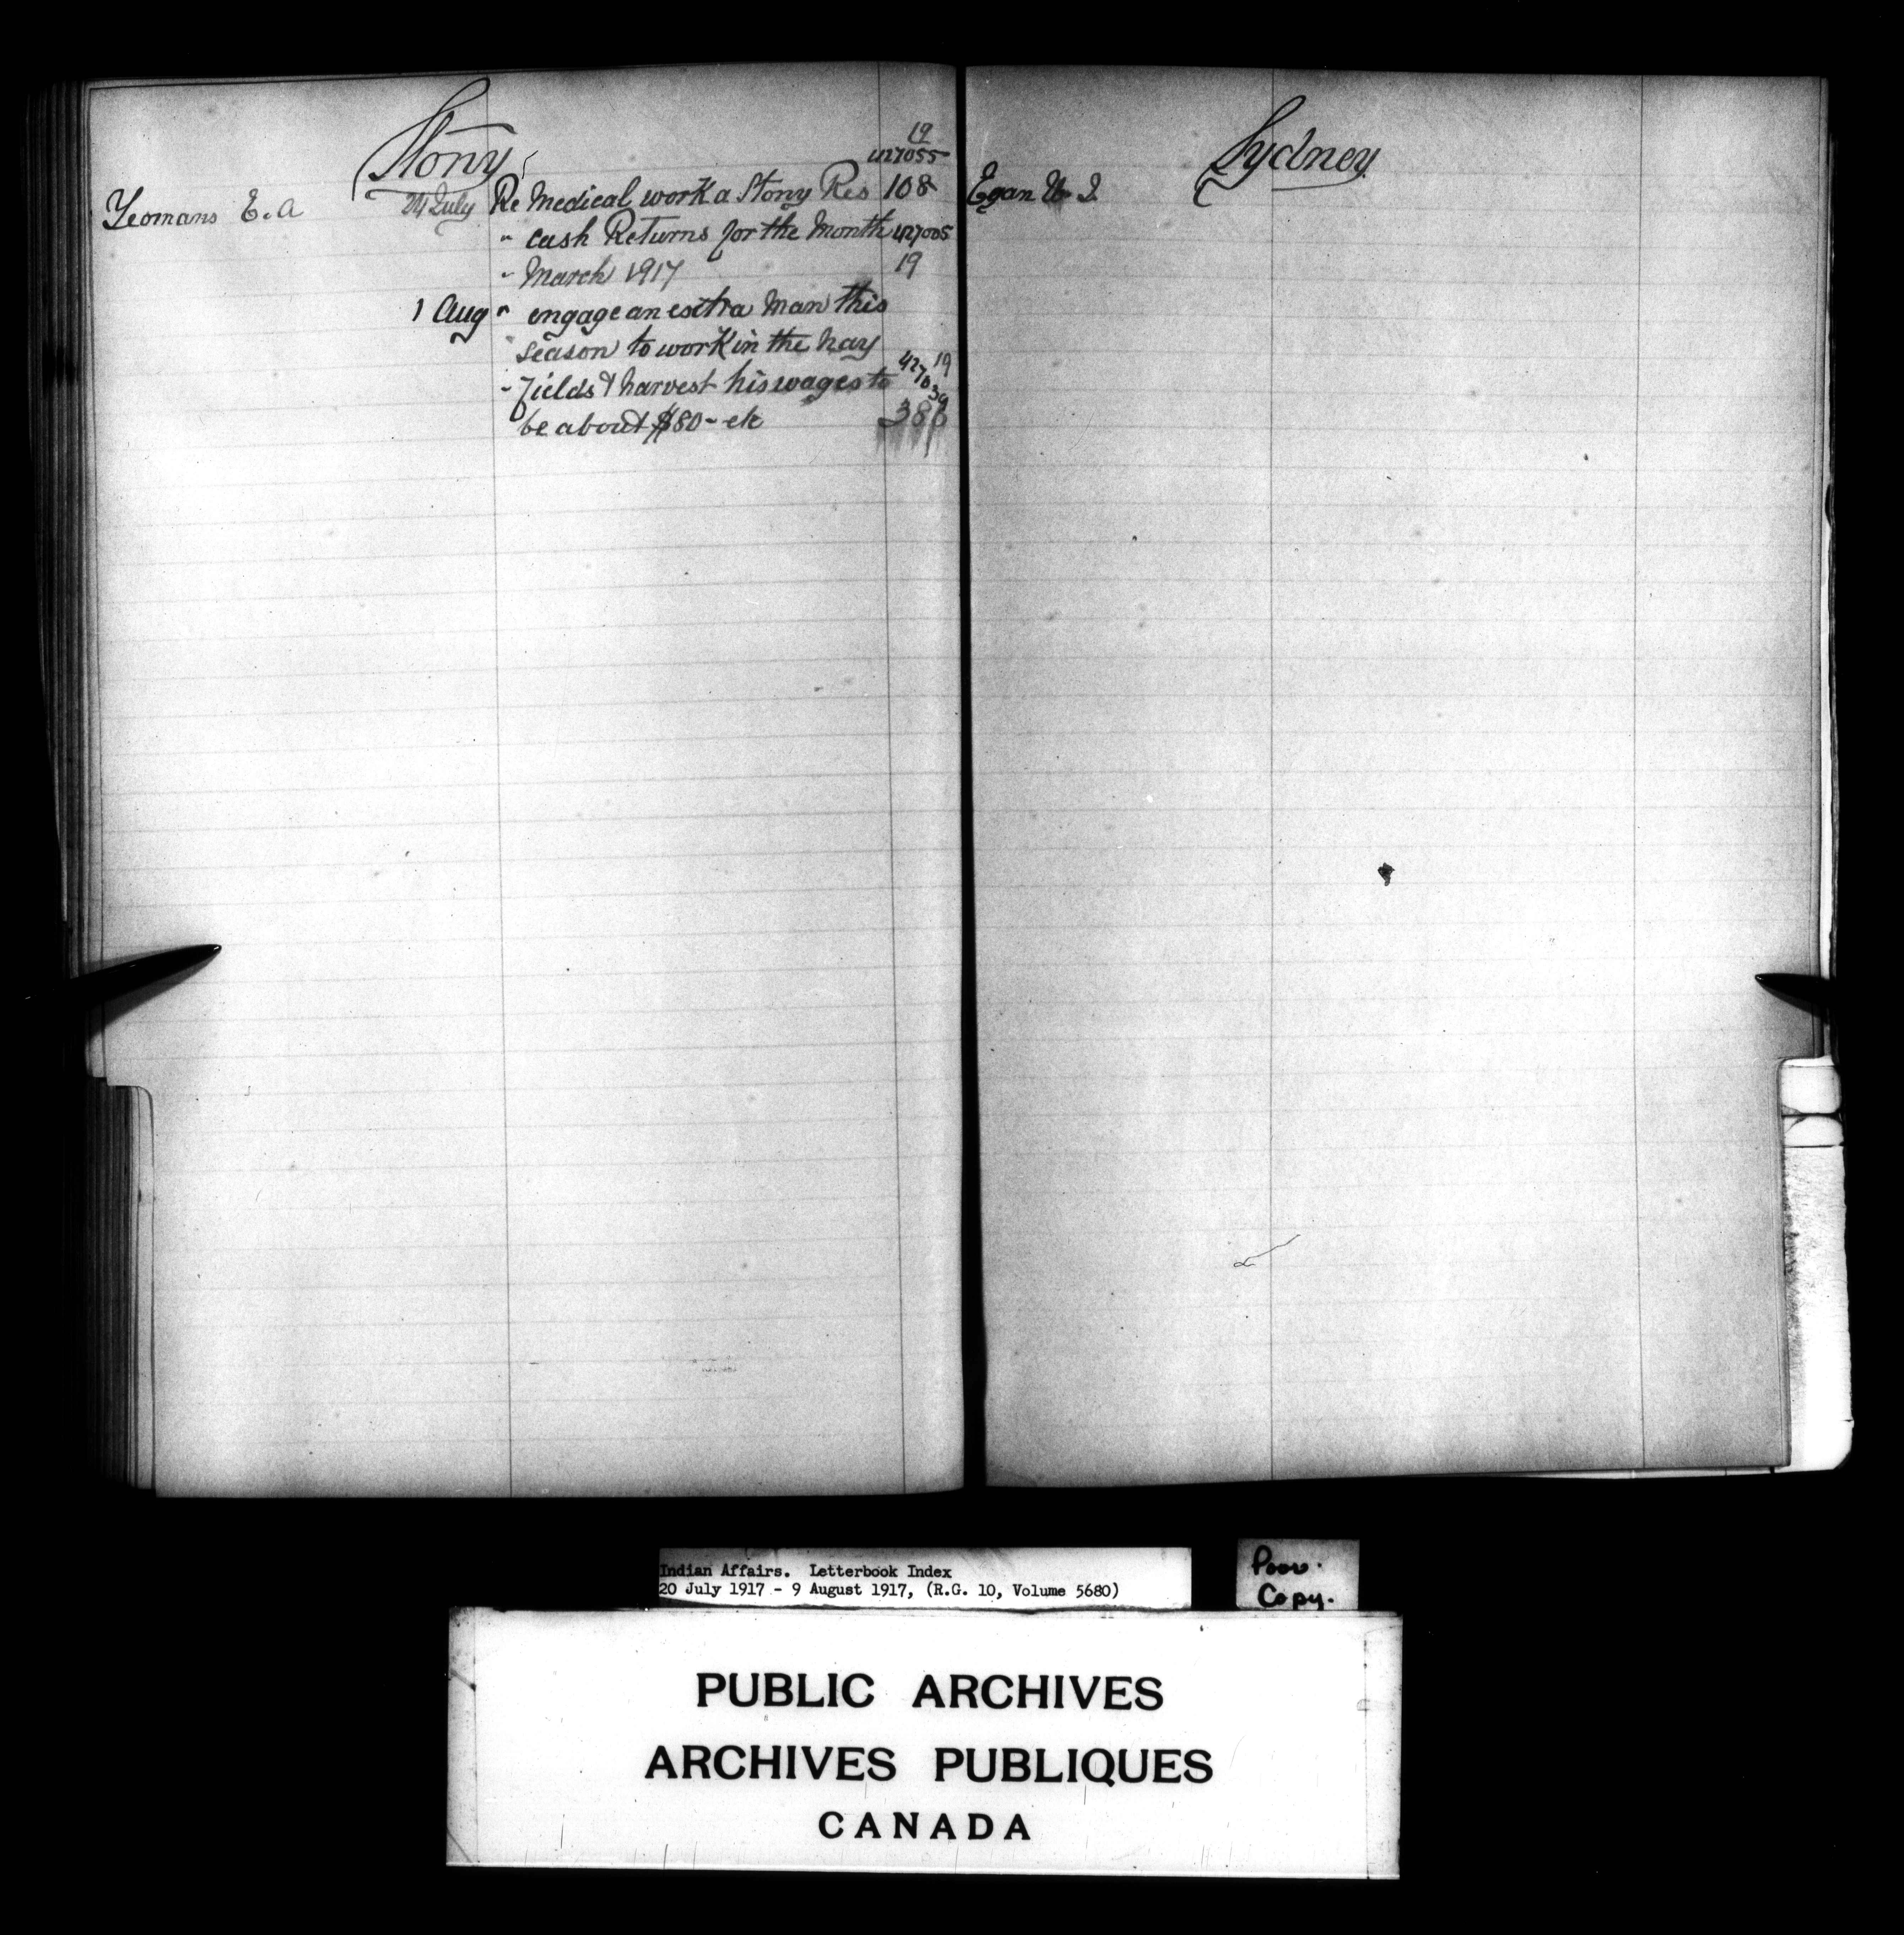 Stony
19
427055
Yeomans E. A 24 July Re Medical work a Stony Res 108
" Cash Returns for the Month 427005
" March 1917 19
1 Aug " engage an extra Man this
season to work in the hay
" fields & harvest his wages to 427039 19
be about $80- etc 386
Sydney
Egan
Indian Affairs. Letterbook Index
20 July 1917 - 9 August 1917, (R.G. 10, Volume 5680)
Poor.
Copy.
PUBLIC ARCHIVES
ARCHIVES PUBLIQUES
CANADA